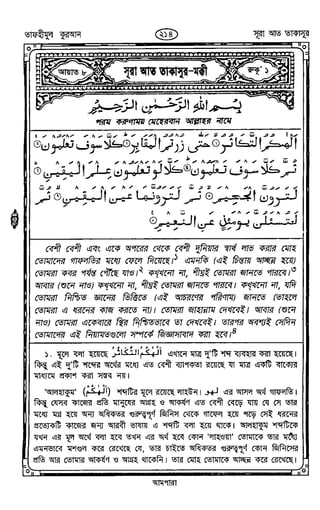 তাফহীমুল কুরআন ২১৪ সূরা আত তাকাসুর
আয়াত ৮ সূরা আত তাকাসুর-মক্কী রুকূ' ১
بِسْمِ اللهِ الرَّحْمٰنِ الرَّحِيْمِ
পরম করুণাময় মেহেরবান আল্লাহর নামে
اَلْهٰىكُمُ التَّكَاثُرُ ۝ حَتّٰى زُرْتُمُ الْمَقَابِرَ ۝ كَلَّا سَوْفَ تَعْلَمُوْنَ ۝
ثُمَّ كَلَّا سَوْفَ تَعْلَمُوْنَ ۝ كَلَّا لَوْ تَعْلَمُوْنَ عِلْمَ الْيَقِيْنِ ۝
لَتَرَوُنَّ الْجَحِيْمَ ۝ ثُمَّ لَتَرَوُنَّهَا عَيْنَ الْيَقِيْنِ ۝ ثُمَّ
لَتُسْئَلُنَّ يَوْمَئِذٍ عَنِ النَّعِيْمِ ۝
বেশী বেশী এবং একে অপরের থেকে বেশী দুনিয়ার স্বার্থ লাভ করার মোহ
তোমাদের গাফলতির মধ্যে ফেলে দিয়েছে।১ এমনকি (এই চিন্তায় আচ্ছন্ন হয়ে)
তোমরা কবর পর্যন্ত পৌঁছে যাও।২ কখ্খনো না, শীঘ্রই তোমরা জানতে পারবে।৩
আবার (শুনে নাও) কখ্খনো না, শীঘ্রই তোমরা জানতে পারবে। কখ্খনো না, যদি
তোমরা নিশ্চিত জ্ঞানের ভিত্তিতে (এই আচরণের পরিণাম) জানতে (তাহলে
তোমরা এ ধরনের কাজ করতে না)। তোমরা জাহান্নাম দেখবেই। আবার (শুনে
নাও) তোমরা একেবারে স্থির নিশ্চিতভাবে তা দেখবেই। তারপর অবশ্যই সেদিন
তোমাদের এই নিয়ামতগুলো সম্পর্কে জিজ্ঞাসাবাদ করা হবে।৪
১. মূলে বলা হয়েছে اَلْهٰىكُمُ التَّكَاثُرُ এখানে মাত্র দু'টি শব্দ ব্যবহার করা হয়েছে।
কিন্তু এই দু'টি শব্দের অর্থের মধ্যে এত বেশী ব্যাপকতা রয়েছে যা মাত্র একটি বাক্যের
মাধ্যমে প্রকাশ করা সম্ভব নয়।
'আলহাকুম' (اَلْهٰىكُمُ) শব্দটির মূলে রয়েছে লাহউন। لهو এর আসল অর্থ গাফলতি।
কিন্তু যেসব কাজের প্রতি মানুষের আগ্রহ ও আকর্ষণ এত বেশী বেড়ে যায় যে সে তার
মধ্যে মগ্ন হয়ে অন্য অধিকতর গুরুত্বপূর্ণ জিনিস থেকে গাফেল হয়ে পড়ে সেই ধরনের
প্রত্যেকটি কাজের জন্য আরবী ভাষায় এ শব্দটি বলা হয়ে থাকে। আলহাকুম শব্দটিকে
যখন এর মূল অর্থে বলা হবে তখন এর অর্থ হবে কোন 'লাহওয়া' তোমাকে তার মধ্যে
এমনভাবে মশগুল করে রেখেছে যে, তার চাইতে অধিকতর গুরুত্বপূর্ণ কোন জিনিসের
প্রতি আর তোমার আকর্ষণ ও আগ্রহ থাকেনি। তার মোহ তোমাকে আচ্ছন্ন করে রেখেছে।
আমপারা